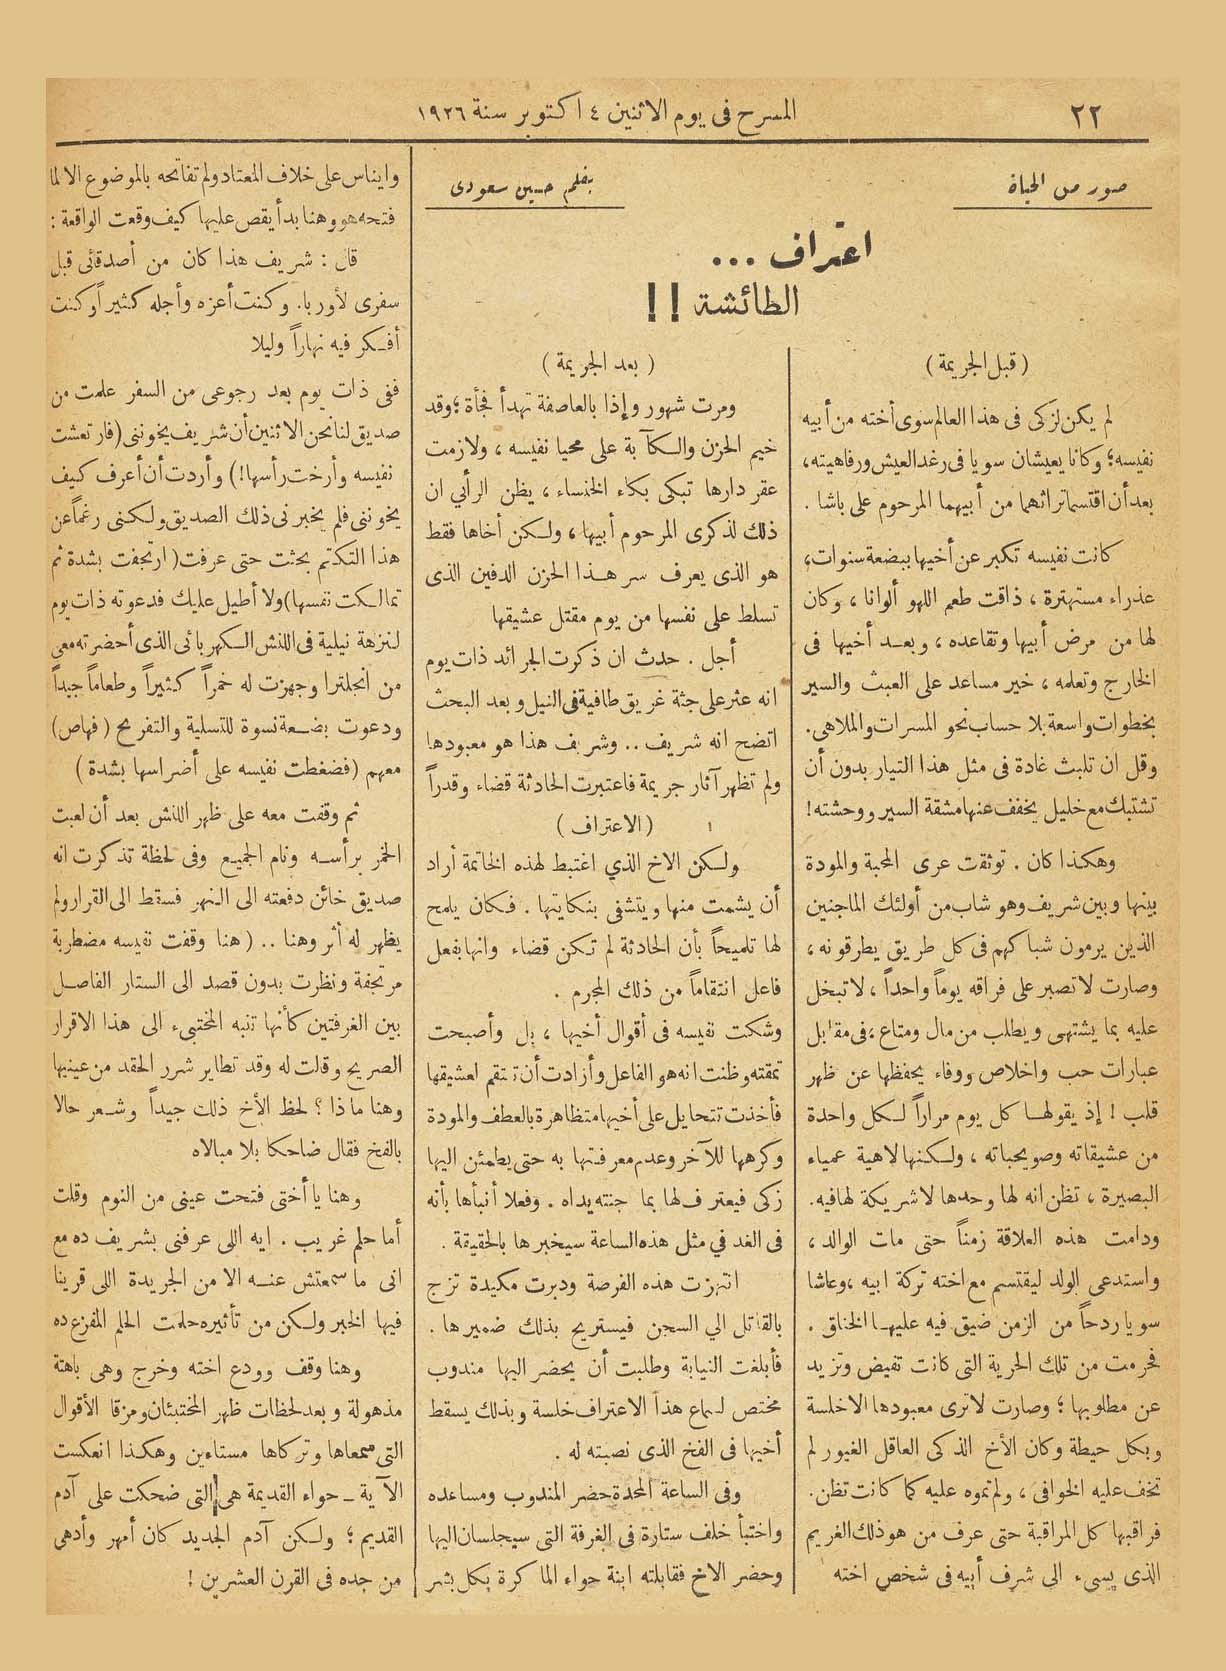 ٢٢
المسرح فى يوم الاثنين ٤ اكتوبر سنة ١٩٢٦
صور من الحياة
بقلم حسين سعودى
اعتراف ...
الطائشة !!
( قبل الجريمة )
لم يكن لزكى فى هذا العالم سوى أخته من أبيه
نفيسه؛ وكانا يعيشان سويا فى رغد العيش ورفاهيته،
بعد أن اقتسما تراثهما من أبيهما المرحوم على باشا .
كانت نفيسه تكبر عن أخيها ببضعة سنوات،
عذراء مستهترة ، ذاقت طعم اللهو ألوانا ، وكان
لها من مرض أبيها وتقاعده ، وبعد أخيها فى
الخارج وتعلمه ، خير مساعد على العبث والسير
بخطوات واسعة بلا حساب نحو المسرات والملاهى.
وقل ان تلبث غادة فى مثل هذا التيار بدون أن
تشتبك مع خليل يخفف عنها مشقة السير ووحشته!
وهكذا كان . توثقت عرى المحبة والمودة
بينها وبين شريف وهو شاب من أولئك الماجنين
الذين يرمون شباكهم فى كل طريق يطرقونه ،
وصارت لا تصبر على فراقه يوماً واحداً ، لا تبخل
عليه بما يشتهى ويطلب من مال ومتاع ، فى مقابل
عبارات حب واخلاص ووفاء يحفظها عن ظهر
قلب ! إذ يقولها كل يوم مراراً لكل واحدة
من عشيقاته وصويحباته ، ولكنها لاهية عمياء
البصيرة ، تظن انه لها وحدها لا شريكة لها فيه.
ودامت هذه العلاقة زمناً حتى مات الوالد ،
واستدعى الولد ليقتسم مع اخته تركة ابيه ، وعاشا
سويا ردحاً من الزمن ضيق فيه عليها الخناق .
فحرمت من تلك الحرية التى كانت تفيض وتزيد
عن مطلوبها ؛ وصارت لا ترى معبودها الا خلسة
وبكل حيطة وكان الأخ الذكى العاقل الغيور لم
تخف عليه الخوافى ، ولم تموه عليه كما كانت تظن.
فراقبها كل المراقبة حتى عرف من هو ذلك الغريم
الذى يسىء الى شرف أبيه فى شخص اخته
( بعد الجريمة )
ومرت شهور وإذا بالعاصفة تهدأ فجأة؛ وقد
خيم الحزن والكآبة على محيا نفيسه ، ولازمت
عقر دارها تبكى بكاء الخنساء ، يظن الرأني ان
ذلك لذكرى المرحوم أبيها، ولكن أخاها فقط
هو الذى يعرف سر هذا الحزن الدفين الذى
تسلط على نفسها من يوم مقتل عشيقها
أجل . حدث ان ذكرت الجرائد ذات يوم
انه عثر على جثة غريق طافية فى النيل وبعد البحث
اتضح انه شريف .. وشريف هذا هو معبودها
ولم تظهر آثار جريمة فاعتبرت الحادثة قضاء وقدراً
( الاعتراف )
ولكن الاخ الذي اغتبط لهذه الخاتمة أراد
أن يشمت منها ويتشفى بنكايتها . فكان يلمح
لها تلميحاً بأن الحادثة لم تكن قضاء وانها بفعل
فاعل انتقاماً من ذلك المجرم .
وشكت نفيسه فى أقوال أخيها ، بل وأصبحت
تمقته وظنت انه هو الفاعل وأرادت أن تنتقم لعشيقها
فأخذت تتحايل على أخيها متظاهرة بالعطف والمودة
وكرهها للآخر وعدم معرفتها به حتى يطمئن اليها
زكى فيعترف لها بما جنته يداه . وفعلا أنبأها بأنه
فى الغد في مثل هذه الساعة سيخبرها بالحقيقة .
انتهزت هذه الفرصة ودبرت مكيدة تزج
بالقاتل الي السجن فيستريح بذلك ضميرها .
فأبلغت النيابة وطلبت أن يحضر اليها مندوب
مختص لسماع هذا الاعتراف خلسة وبذلك يسقط
أخيها فى الفخ الذى نصبته له .
وفى الساعة المحددة حضر المندوب ومساعده
واختبأ خلف ستارة فى الغرفة التى سيجلسان اليها
وحضر الاخ فقابلته ابنة حواء الماكرة بكل بشر
وايناس على خلاف المعتاد ولم تفاتحه بالموضوع الا لما
فتحه هو وهنا بدأ يقص عليها كيف وقعت الواقعة :
قال : شريف هذا كان من أصدقائى قبل
سفرى لأوربا. وكنت أعزه وأجله كثيراً وكنت
أفكر فيه نهاراً وليلا
ففى ذات يوم بعد رجوعى من السفر علمت من
صديق لنا نحن الاثنين أن شريف يخوننى (فارتعشت
نفيسه وأرخت رأسها!) وأردت أن أعرف كيف
يخوننى فلم يخبرنى ذلك الصديق ولكنى رغماً عن
هذا التكتم بحثت حتى عرفت ( ارتجفت بشدة ثم
تمالكت نفسها) ولا أطيل عليك فدعوته ذات يوم
لنزهة نيلية فى اللنش الكهربائى الذى أحضرته معى
من انجلترا وجهزت له خمراً كثيراً وطعاماً جيداً
ودعوت بضعة نسوة للتسلية والتفريح (فهاص)
معهم (فضغطت نفيسه على أضراسها بشدة )
ثم وقفت معه على ظهر اللنش بعد أن لعبت
الخمر برأسه ونام الجميع وفى لحظة تذكرت انه
صديق خائن دفعته الى النهر فسقط الى القرار ولم
يظهر له أثر وهنا .. ( هنا وقفت نفيسه مضطربة
مرتجفة ونظرت بدون قصد الى الستار الفاصل
بين الغرفتين كأنها تنبه المختبىء الى هذا الاقرار
الصريح وقالت له وقد تطاير شرر الحقد من عينيها
وهنا ماذا ؟ لحظ الأخ ذلك جيداً وشعر حالا
بالفخ فقال ضاحكا بلا مبالاه
وهنا يا أختى فتحت عينى من النوم وقلت
أما حلم غريب . ايه اللى عرفنى بشريف ده مع
انى ما سمعتش عنه الا من الجريدة اللى قرينا
فيها الخبر ولكن من تأثيره حلمت الحلم المفزع ده
وهنا وقف وودع اخته وخرج وهى باهتة
مذهولة وبعد لحظات ظهر المختبئان ومزقا الأقوال
التى سمعاها وتركاها مستاءين وهكذا انعكست
الآية ـ حواء القديمة هى التى ضحكت على آدم
القديم ؛ ولكن آدم الجديد كان أمهر وأدهى
من جده فى القرن العشرين !